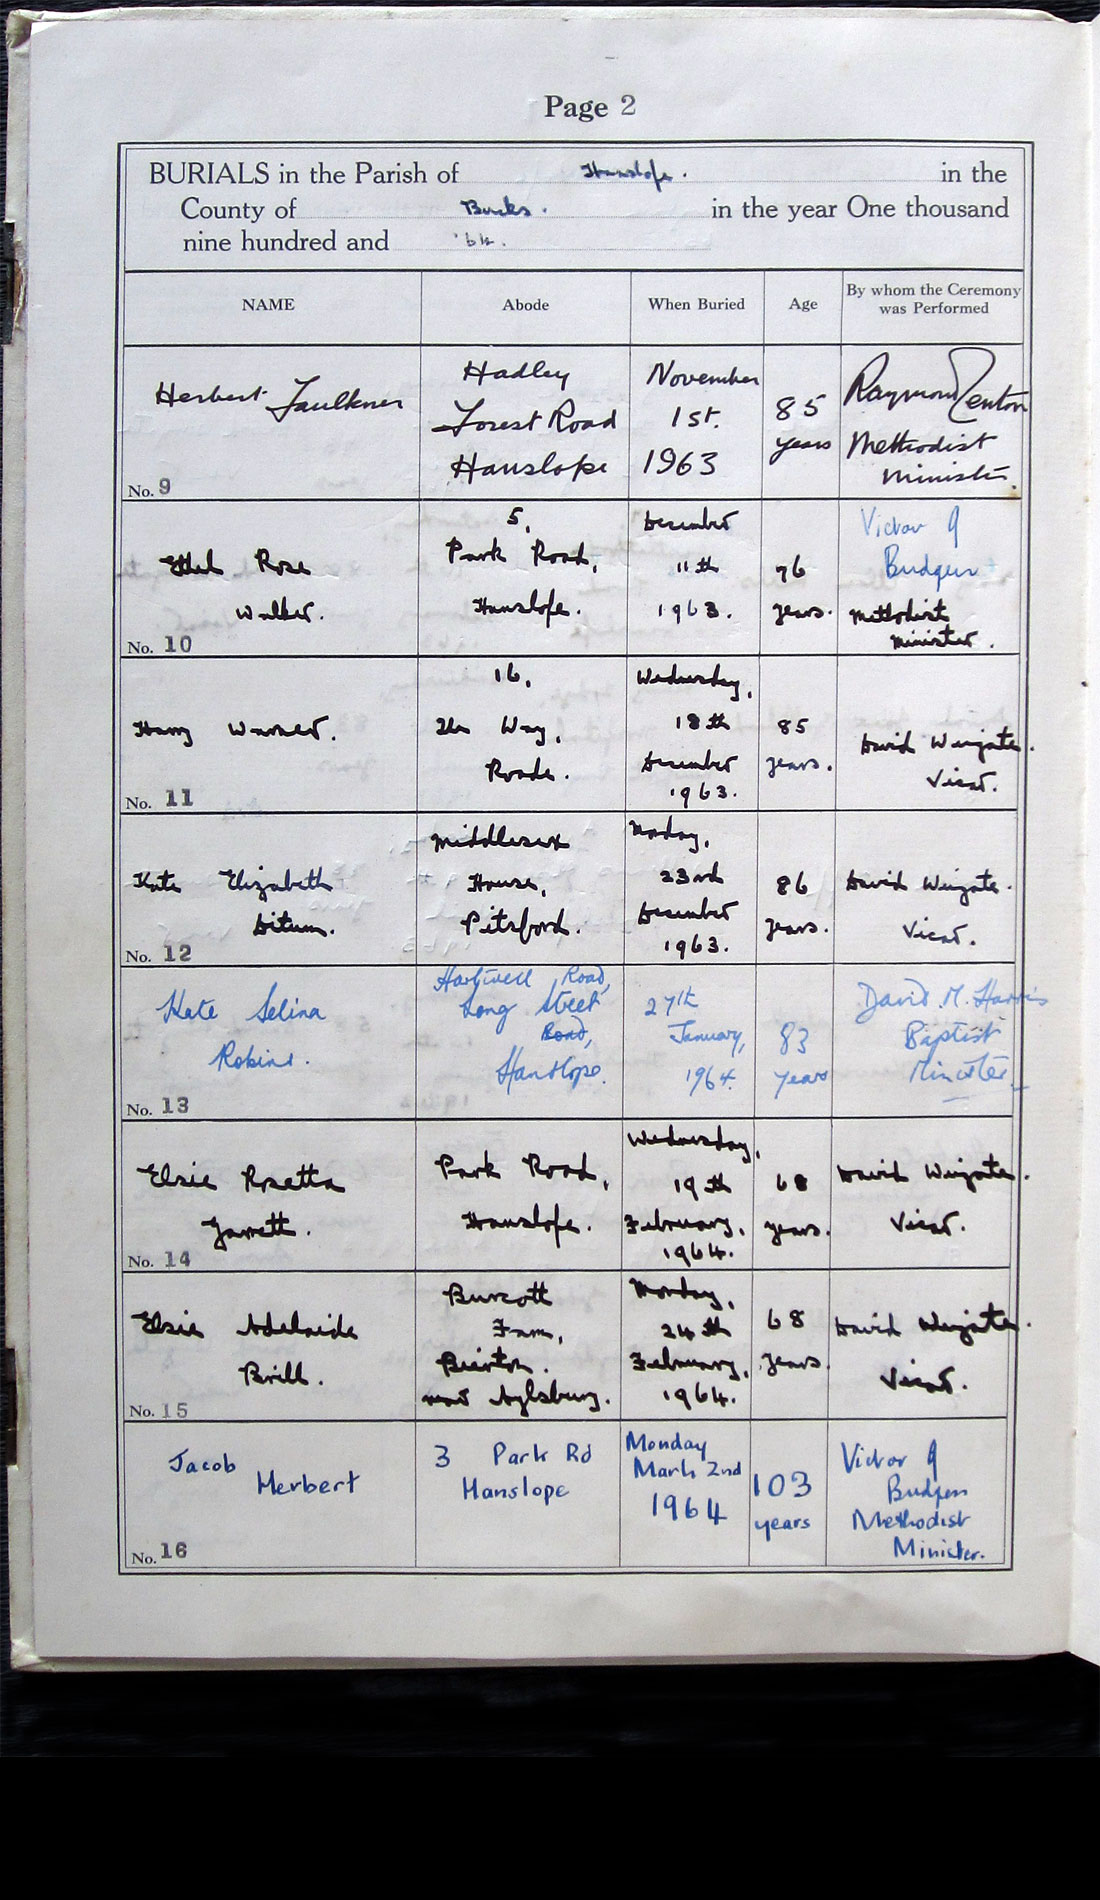 Page 2
BURIALS in the Parish of Hanslope. in the
County of Bucks. in the year One thousand
nine hundred and '64.
NAME Abode When Buried Age By whom the Ceremony was Performed
Herbert Faulkner
Hadley
Forest Road
Hanslope
November
1st.
1963
85
years
Raymond
Methodist
Minister.
No. 9
Ethel Rose
Walker.
5,
Park Road,
Hanslope.
December
11th
1963.
76
years.
Victor A
Budgen
Methodist
Minister.
No. 10
Harry Warner.
16,
Way,
Roade.
Wednesday,
18th
December
1963.
85
years.
David Wingate.
Vicar.
No. 11
Kate Elizabeth
Ditum.
Middlesex
House,
Pitsford.
Monday,
23rd
December
1963.
86
years.
David Wingate.
Vicar.
No. 12
Kate Selina
Robins.
Hartwell Road,
Long Street
Road,
Hanslope.
27th
January,
1964.
83
years
David M. Harris
Baptist
Minister.
No. 13
Elsie Rosetta
Garrett.
Park Road,
Hanslope.
Wednesday,
19th
February,
1964.
68
years.
David Wingate.
Vicar.
No. 14
Elsie Adelaide
Brill.
Burcott
Farm,
Bierton.
near Aylsbury.
Monday,
24th
February,
1964.
68
years.
David Wingate.
Vicar.
No. 15
Jacob
Herbert
3 Park Rd
Hanslope
Monday
March 2nd
1964
103
years
Victor A
Budgen
Methodist
Minister.
No. 16